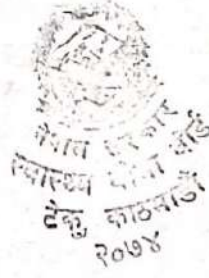 नेपाल सरकार
स्वास्थ्य बीमा बोर्ड
टेकु काठमाडौं
२०७४